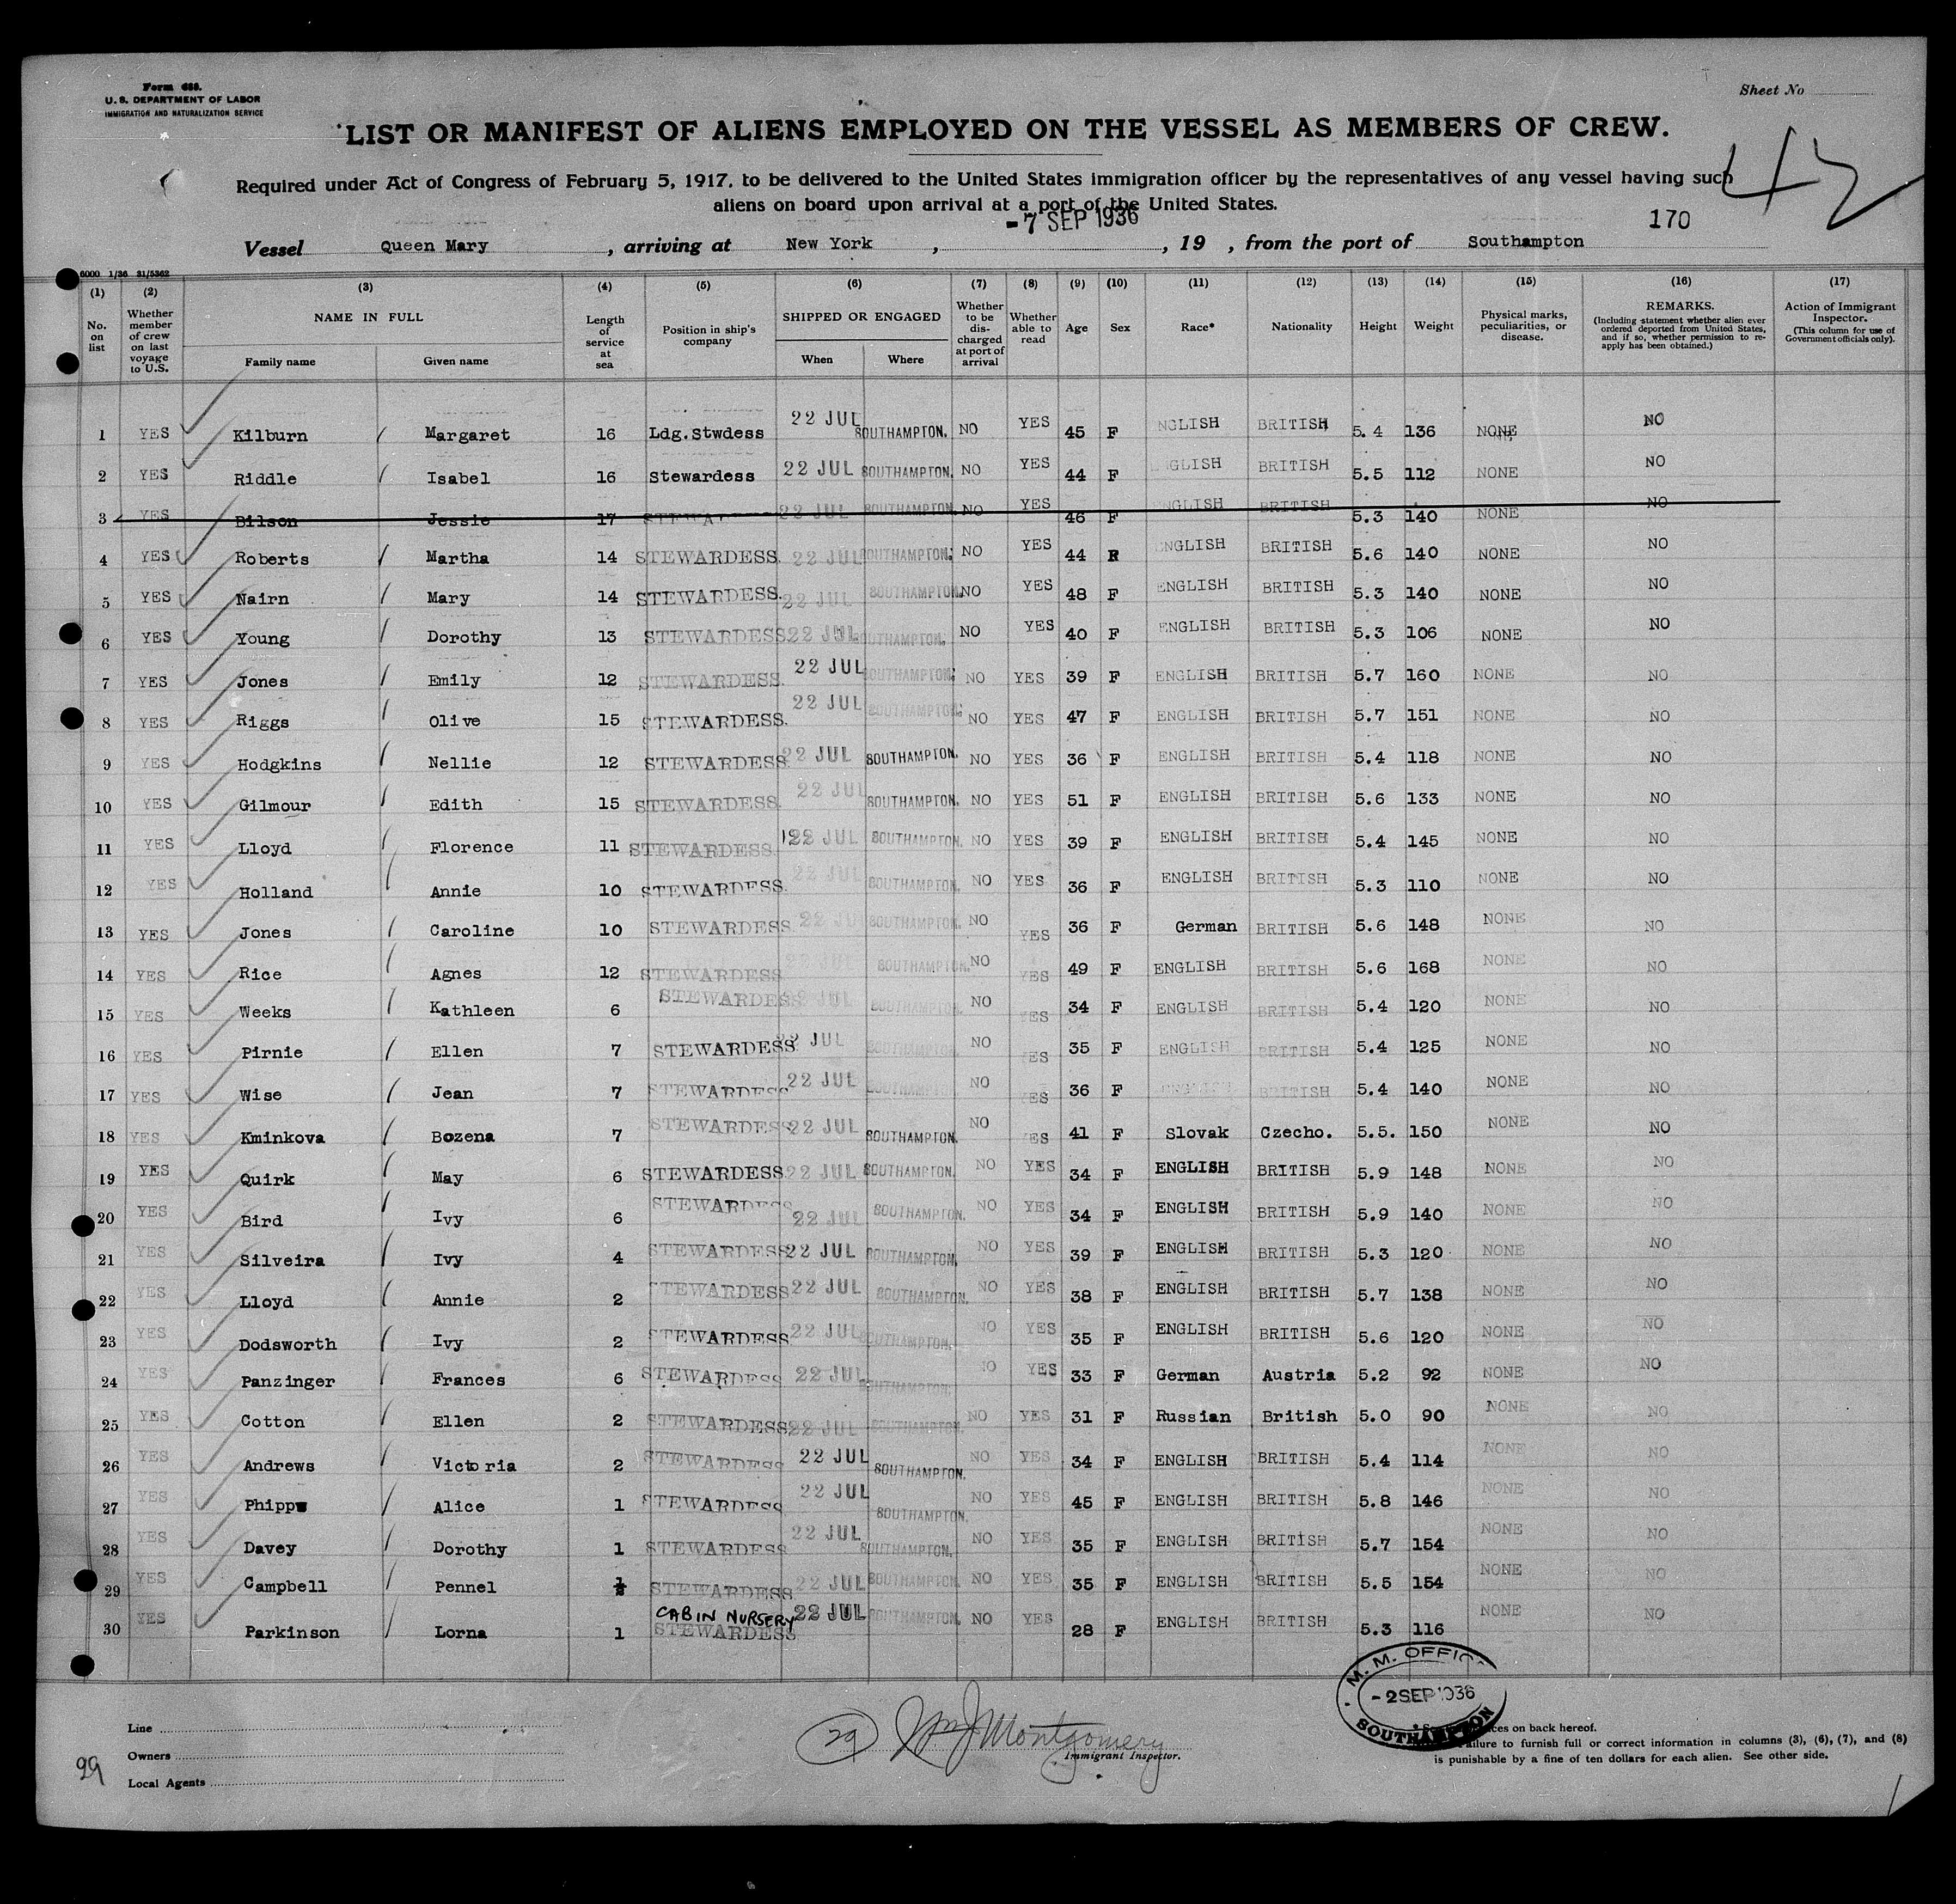 Form 688.
U. S. DEPARTMENT OF LABOR
IMMIGRATION AND NATURALIZATION SERVICE
Sheet No
LIST OR MANIFEST OF ALIENS EMPLOYED ON THE VESSEL AS MEMBERS OF CREW.
42
Required under Act of Congress of February 5, 1917, to be delivered to the United States immigration officer by the representatives of any vessel having such
aliens on board upon arrival at a port of the United States.
-7 SEP 1936
170
Vessel Queen Mary , arriving at New York , , 19 , from the port of Southampton
6000 1/36 31/5362
(1) (2) (3) (4) (5) (6) (7) (8) (9) (10) (11) (12) (13) (14) (15) (16) (17)
No. on list
Whether member of crew on last voyage to U.S.
NAME IN FULL
Family name
Given name
Length of service at sea
Position in ship's company
SHIPPED OR ENGAGED
When
Where
Whether to be discharged at port of arrival
Whether able to read
Age
Sex
Race*
Nationality
Height
Weight
Physical marks, peculiarities, or disease.
REMARKS.
(Including statement whether alien ever ordered deported from United States, and if so, whether permission to re-apply has been obtained.)
Action of Immigrant Inspector.
(This column for use of Government officials only).
1 YES Kilburn Margaret 16 Ldg. Stwdess 22 JUL SOUTHAMPTON. NO YES 45 F NGLISH BRITISH 5.4 136 NONE NO
2 YES Riddle Isabel 16 Stewardess 22 JUL SOUTHAMPTON. NO YES 44 F GLISH BRITISH 5.5 112 NONE NO
3 YES Bilson Jessie 17 STEWARDESS 22 JUL SOUTHAMPTON. NO YES 46 F NGLISH BRITISH 5.3 140 NONE NO
4 YES Roberts Martha 14 STEWARDESS. 22 JUL SOUTHAMPTON. NO YES 44 F ENGLISH BRITISH 5.6 140 NONE NO
5 YES Nairn Mary 14 STEWARDESS. 22 JUL SOUTHAMPTON. NO YES 48 F ENGLISH BRITISH 5.3 140 NONE NO
6 YES Young Dorothy 13 STEWARDESS 22 JUL SOUTHAMPTON. NO YES 40 F ENGLISH BRITISH 5.3 106 NONE NO
7 YES Jones Emily 12 STEWARDESS. 22 JUL SOUTHAMPTON. NO YES 39 F ENGLISH BRITISH 5.7 160 NONE NO
8 YES Riggs Olive 15 STEWARDESS. 22 JUL SOUTHAMPTON. NO YES 47 F ENGLISH BRITISH 5.7 151 NONE NO
9 YES Hodgkins Nellie 12 STEWARDESS 22 JUL SOUTHAMPTON. NO YES 36 F ENGLISH BRITISH 5.4 118 NONE NO
10 YES Gilmour Edith 15 STEWARDESS. 22 JUL SOUTHAMPTON. NO YES 51 F ENGLISH BRITISH 5.6 133 NONE NO
11 YES Lloyd Florence 11 STEWARDESS. 22 JUL SOUTHAMPTON. NO YES 39 F ENGLISH BRITISH 5.4 145 NONE NO
12 YES Holland Annie 10 STEWARDESS. 22 JUL SOUTHAMPTON. NO YES 36 F ENGLISH BRITISH 5.3 110 NONE NO
13 YES Jones Caroline 10 STEWARDESS 22 JUL SOUTHAMPTON. NO YES 36 F German BRITISH 5.6 148 NONE NO
14 YES Rice Agnes 12 STEWARDESS 22 JUL SOUTHAMPTON. NO YES 49 F ENGLISH BRITISH 5.6 168 NONE NO
15 YES Weeks Kathleen 6 STEWARDESS 22 JUL SOUTHAMPTON NO YES 34 F ENGLISH BRITISH 5.4 120 NONE NO
16 YES Pirnie Ellen 7 STEWARDESS 22 JUL SOUTHAMPTON NO YES 35 F ENGLISH BRITISH 5.4 125 NONE NO
17 YES Wise Jean 7 STEWARDESS 22 JUL SOUTHAMPTON NO YES 36 F ENGLISH BRITISH 5.4 140 NONE NO
18 YES Kminkova Bozena 7 STEWARDESS 22 JUL SOUTHAMPTON. NO YES 41 F Slovak Czecho. 5.5. 150 NONE NO
19 YES Quirk May 6 STEWARDESS 22 JUL SOUTHAMPTON. NO YES 34 F ENGLISH BRITISH 5.9 148 NONE NO
20 YES Bird Ivy 6 STEWARDESS 22 JUL SOUTHAMPTON. NO YES 34 F ENGLISH BRITISH 5.9 140 NONE NO
21 YES Silveira Ivy 4 STEWARDESS 22 JUL SOUTHAMPTON. NO YES 39 F ENGLISH BRITISH 5.3 120 NONE NO
22 YES Lloyd Annie 2 STEWARDESS 22 JUL SOUTHAMPTON. NO YES 38 F ENGLISH BRITISH 5.7 138 NONE NO
23 YES Dodsworth Ivy 2 STEWARDESS 22 JUL SOUTHAMPTON. NO YES 35 F ENGLISH BRITISH 5.6 120 NONE NO
24 YES Panzinger Frances 6 STEWARDESS 22 JUL SOUTHAMPTON. NO YES 33 F German Austria 5.2 92 NONE NO
25 YES Cotton Ellen 2 STEWARDESS 22 JUL SOUTHAMPTON NO YES 31 F Russian British 5.0 90 NONE NO
26 YES Andrews Victoria 2 STEWARDESS 22 JUL SOUTHAMPTON. NO YES 34 F ENGLISH BRITISH 5.4 114 NONE NO
27 YES Phipps Alice 1 STEWARDESS 22 JUL SOUTHAMPTON. NO YES 45 F ENGLISH BRITISH 5.8 146 NONE NO
28 YES Davey Dorothy 1 STEWARDESS 22 JUL SOUTHAMPTON. NO YES 35 F ENGLISH BRITISH 5.7 154 NONE NO
29 YES Campbell Pennel STEWARDESS 22 JUL SOUTHAMPTON. NO YES 35 F ENGLISH BRITISH 5.5 154 NONE NO
30 YES Parkinson Lorna 1 CABIN NURSERY STEWARDESS 22 JUL SOUTHAMPTON. NO YES 28 F ENGLISH BRITISH 5.3 116 NONE NO
M. M. OFFIC
-2 SEP 1936
SOUTHAMPTON
Line
Owners
Local Agents
29
29 Wm J Montgomery
Immigrant Inspector.
ces on back hereof.
ailure to furnish full or correct information in columns (3), (6), (7), and (8)
is punishable by a fine of ten dollars for each alien. See other side.